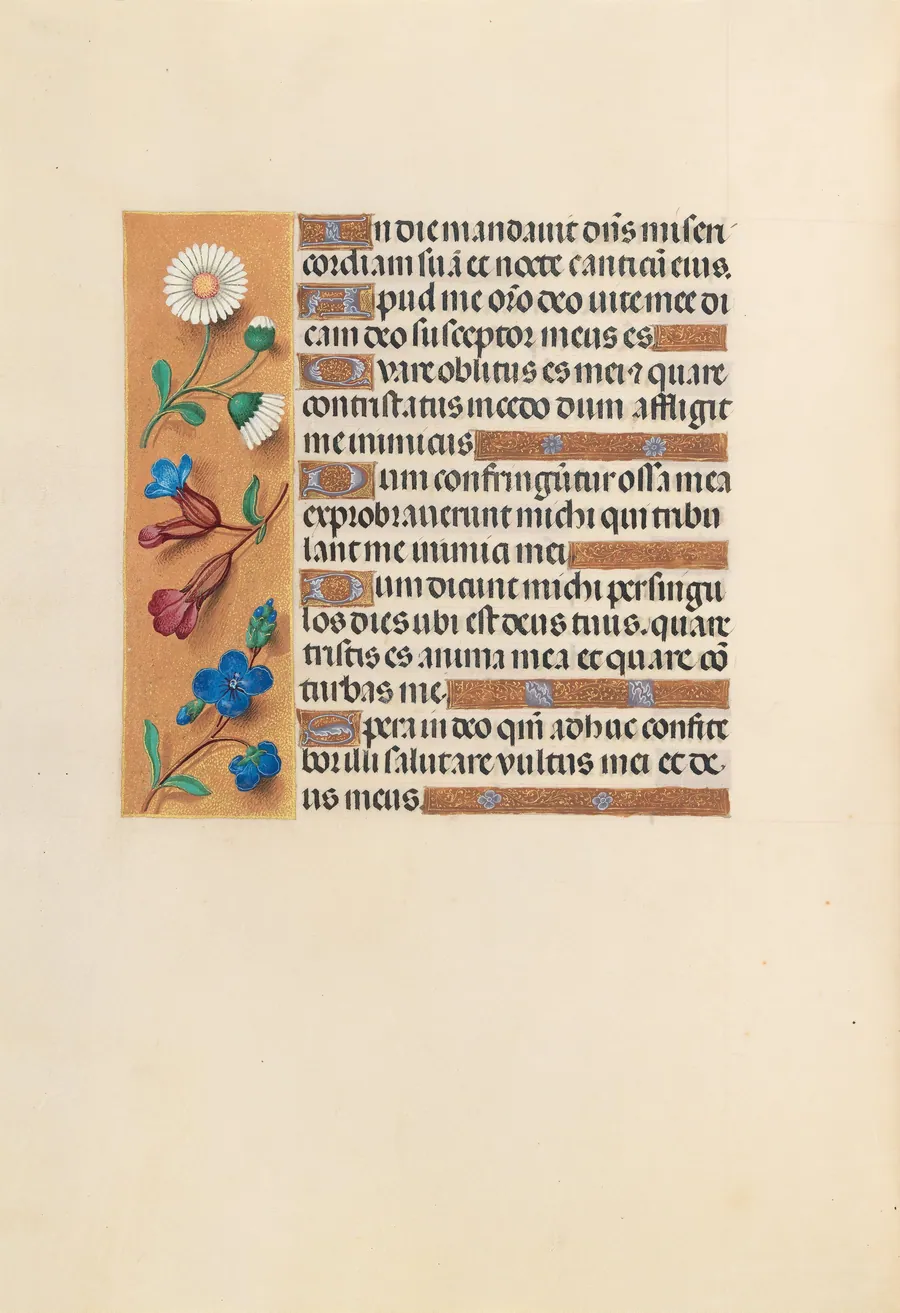 In die mandauit dn̄s miseri
cordiam suā et nocte canticū eius.
Apud me or̄o deo uite mee di
cam deo susceptor meus es
Quare oblitus es mei ⁊ quare
contristatus incedo dum affligit
me inimicus
Dum confringūtur ossa mea
exprobrauerunt michi qui tribu
lant me inimici mei
Dum dicunt michi per singu
los dies ubi est deus tuus. quare
tristis es anima mea et quare cō
turbas me.
Spera in deo qm̄ adhuc confite
bor illi salutare vultus mei et de
us meus.